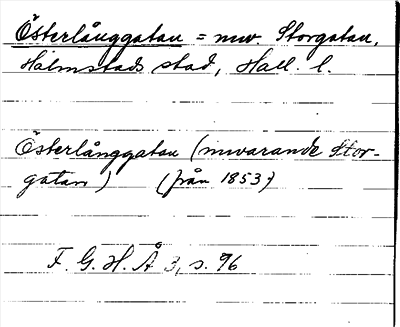 Österlånggatan = nuv. Storgatan,
Halmstads stad, Hall. l.
Österlånggatan (nuvarande Stor-
gatan) (från 1853)
F. G. H. Å 3, s. 96